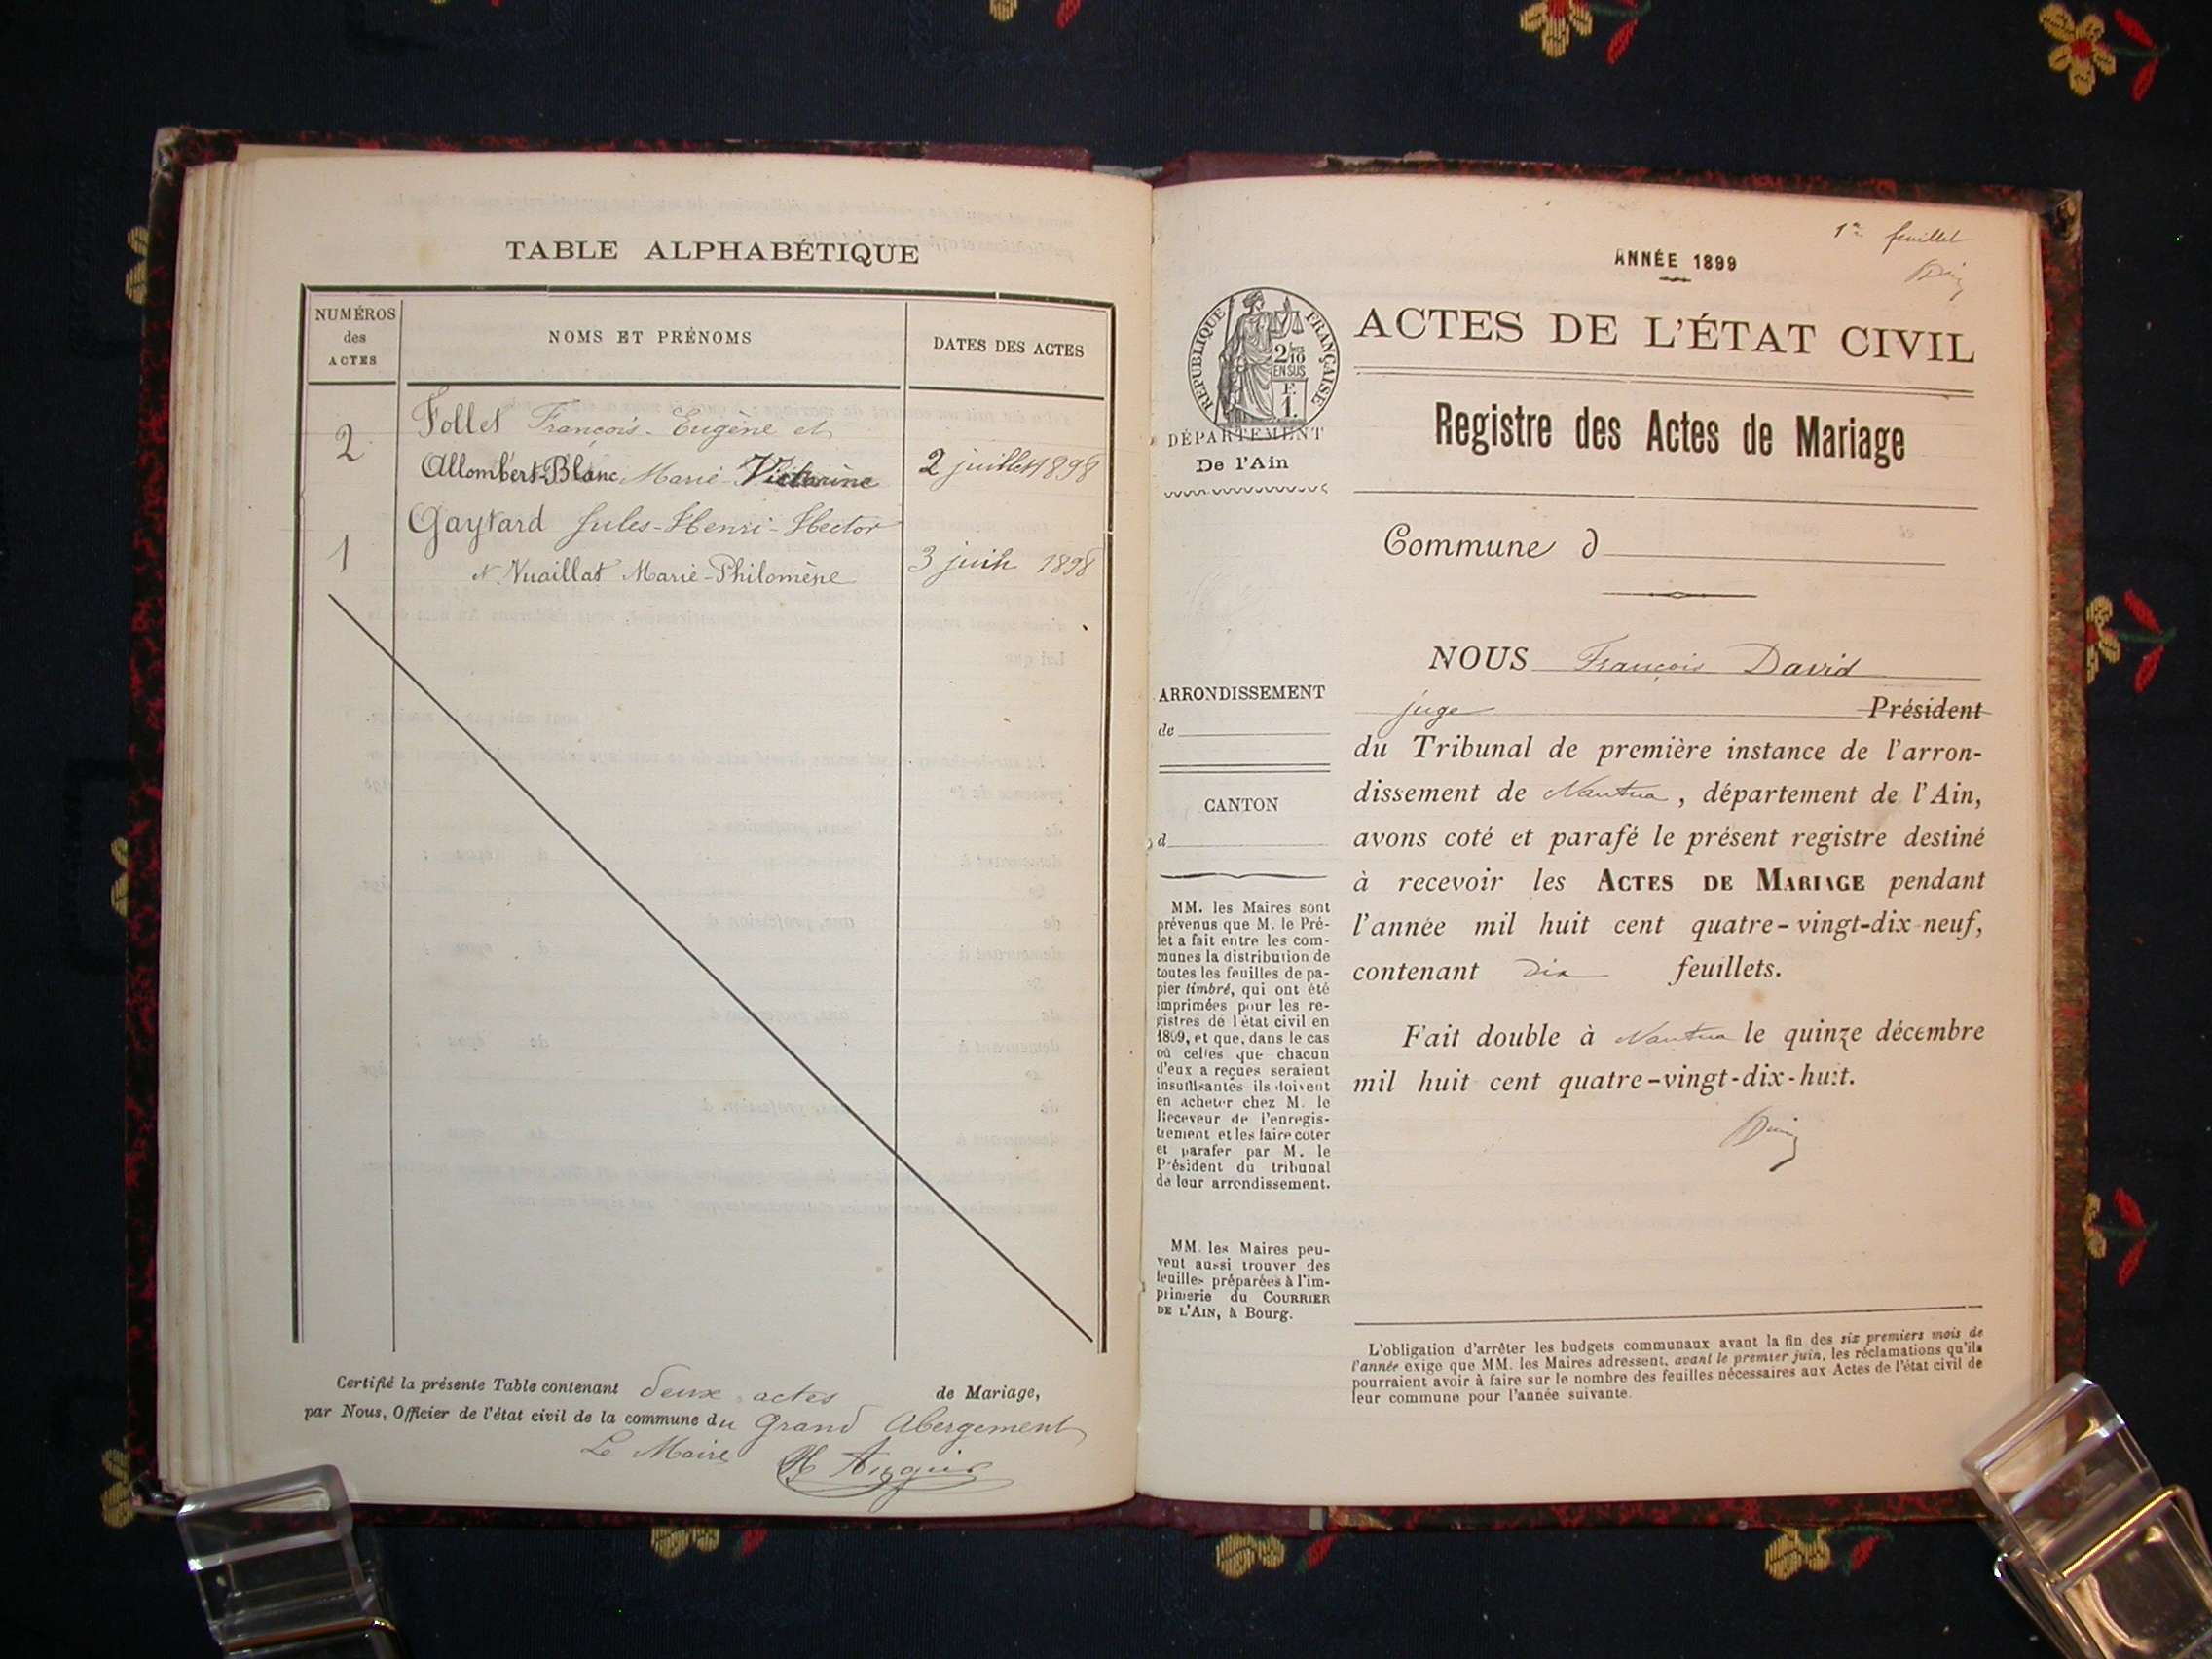 TABLE ALPHABÉTIQUE
NUMÉROS
des
ACTES
NOMS ET PRÉNOMS
DATES DES ACTES
2
Follet François-Eugène et
Allombert-Blanc Marie-Victorine
2 juillet 1898
1
Gaytard Jules-Henri-Hector
et Nuaillat Marie-Philomène
3 juin 1898
Certifié la présente Table contenant deux actes de Mariage,
par Nous, Officier de l'état civil de la commune du Grand Abergement
Le Maire
1er feuillet
ANNÉE 1899
RÉPUBLIQUE FRANÇAISE
2/10
EN SUS
F.
1.
ACTES DE L'ÉTAT CIVIL
DÉPARTEMENT
De l'Ain
Registre des Actes de Mariage
Commune d
NOUS François David
juge Président
du Tribunal de première instance de l'arron-
dissement de Nantua, département de l'Ain,
avons coté et parafé le présent registre destiné
à recevoir les ACTES DE MARIAGE pendant
l'année mil huit cent quatre-vingt-dix-neuf,
contenant dix feuillets.
Fait double à Nantua le quinze décembre
mil huit cent quatre-vingt-dix-huit.
ARRONDISSEMENT
de
CANTON
d
MM. les Maires sont
prévenus que M. le Pré-
fet a fait entre les com-
munes la distribution de
toutes les feuilles de pa-
pier timbré, qui ont été
imprimées pour les re-
gistres de l'état civil en
1899, et que, dans le cas
où celles que chacun
d'eux a reçues seraient
insuffisantes ils doivent
en acheter chez M. le
Receveur de l'enregis-
trement et les faire coter
et parafer par M. le
Président du tribunal
de leur arrondissement.
MM. les Maires peu-
vent aussi trouver des
feuilles préparées à l'im-
primerie du COURRIER
DE L'AIN, à Bourg.
L'obligation d'arrêter les budgets communaux avant la fin des six premiers mois de
l'année exige que MM. les Maires adressent, avant le premier juin, les réclamations qu'ils
pourraient avoir à faire sur le nombre des feuilles nécessaires aux Actes de l'état civil de
leur commune pour l'année suivante.